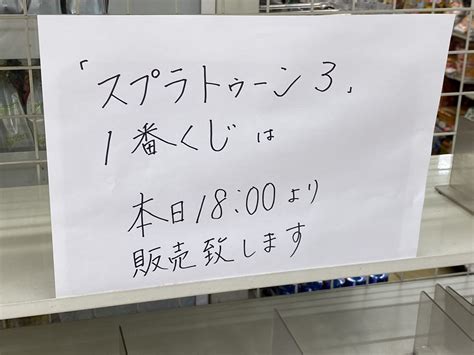 「スプラトゥーン3」
1番くじは
本日18:00より
販売致します